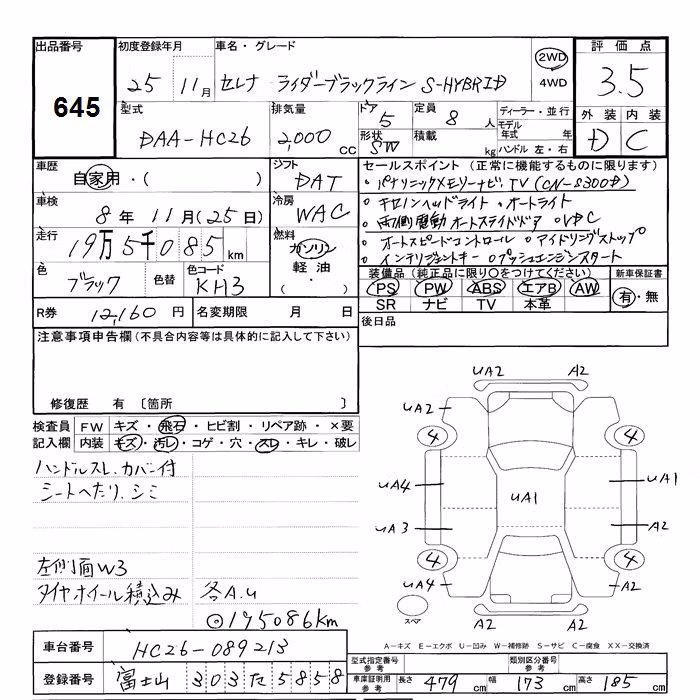 出品番号
645
初度登録年月
25年 11月
車名・グレード
セレナ ライダーブラックライン S-HYBRID
2WD
4WD
評価点
3.5
外装 内装
D C
型式
DAA-HC26
排気量
2,000 cc
ドア
5
形状
SW
定員
8 人
積載
kg
ディーラー・並行
モデル年式 年
ハンドル 左・右
車歴
自家用・( )
シフト
DAT
車検
8年 11月(25日)
冷房
WAC
走行
19万5千085 km
燃料
ガソリン
軽油・
( )
色
ブラック
色替
色コード
KH3
セールスポイント (正常に機能するものに限ります)
・パナソニックメモリーナビ、TV (CN-S300D)
・キセノンヘッドライト ・オートライト
・両側電動オートスライドドア ・VDC
・オートスピードコントロール ・アイドリングストップ
・インテリジェントキー ・プッシュエンジンスタート
装備品 (純正品に限り○をつけてください)
PS PW ABS エアB AW
SR ナビ TV 本革
新車保証書
有・無
R券
12,160 円
名変期限 月 日
後日品
注意事項申告欄 (不具合内容等は具体的に記入して下さい)
修復歴 有 〔箇所 〕
検査員記入欄
FW キズ・飛石・ヒビ割・リペア跡・×要
内装 キズ・汚レ・コゲ・穴・スレ・キレ・破レ
ハンドルスレ、カバー付
シートへたり、シミ
左側面W3
タイヤホイール積込み 各A.U
◎195086km
UA2 A2
UA2 A2
4 4
UA4 UA1 UA1
UA3 A2
4 4
UA4 A2
A2 A2
スペア
A-キズ E-エクボ U-凹み W-補修跡 S-サビ C-腐食 XX-交換済
車台番号
HC26-089213
登録番号
富士山 303 た 5858
型式指定番号
参考
類別区分番号
参考
車庫証明用
参考
長さ 479 cm 幅 173 cm 高さ 185 cm